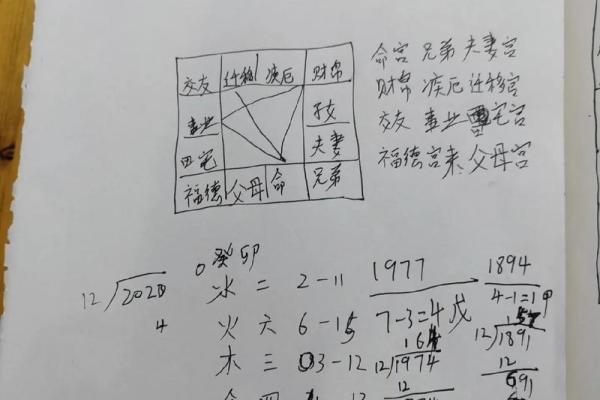 交友 迁移 疾厄 财帛
事业 子女
田宅 夫妻
福德 父母 命 兄弟
命宫 兄弟 夫妻宫
财帛 疾厄 迁移宫
交友 事业 宅宫
福德宫 父母宫
癸卯
水 二 2-11
火 六 6-15
木 三 3-12
1977
7-3=4 戊
12 1974
12
1894
4-1=1 甲
12 1891
12
691
12 202
4